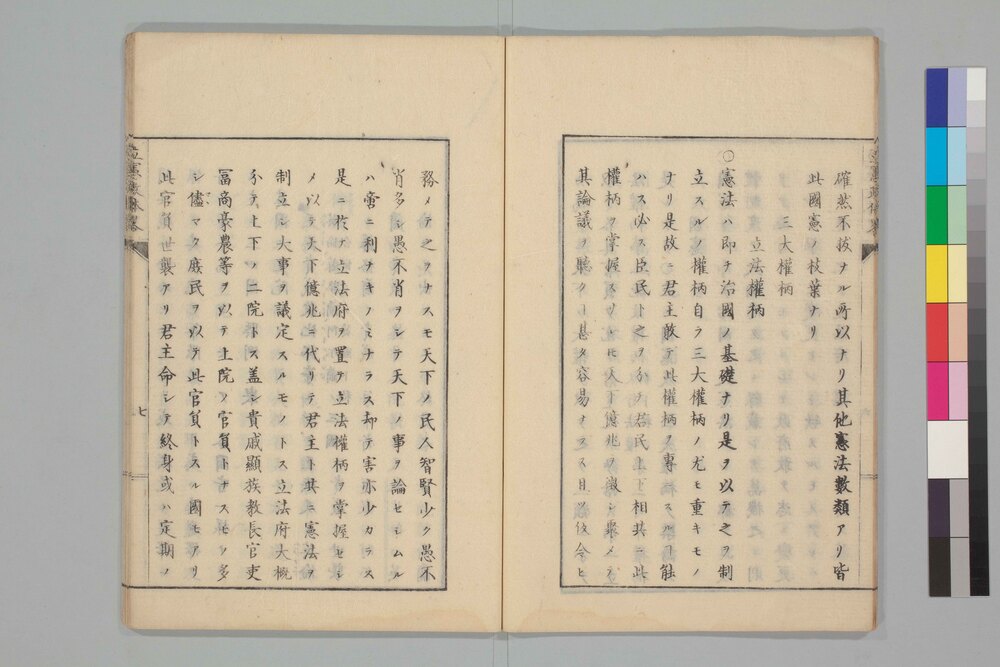 確然不拔ヲナル所以ナリ其他憲法數類アリ皆
此國憲ノ枝葉ナリ
三大權柄
立法權柄
〇憲法ハ即チ治國ノ基礎ナリ是ヲ以テ之ヲ制
立スルノ權柄自ラ三大權柄ノ尤モ重キモノ
ナリ是故ニ君主敢テ此權柄ヲ專ニスルヿ能
ハス必ス臣民ト之ヲ分ツ君民上下相共ニ此
權柄ヲ掌握スヿ天下億兆ヲ徴シ聚メテ
其論議ヲ聽クヿ甚タ容易ナラス且ツ仮令ヒ
務メテ之ヲナスモ天下ノ民人智賢少ク愚不
肖多シ愚不肖ヲシテ天下ノ事ヲ論セシムル
ハ啻ニ利ナキノミナラス却テ害亦少カラス
是ニ於テ立法府ヲ置テ立法權柄ヲ掌握セシ
メ以テ天下億兆ニ代リテ君主ト共ニ憲法ヲ
制立シ大事ヲ議定スルモノトス立法府大概
分テ上下ノ二院トス蓋シ貴戚顯族教長官吏
冨商豪農等ヲ以テ上院ノ官負トナスモノ多
シ儘マタ庶民ヲ以テ此官負トスル國モアリ
此官負世襲アリ君主命シテ終身或ハ定期ノ
七